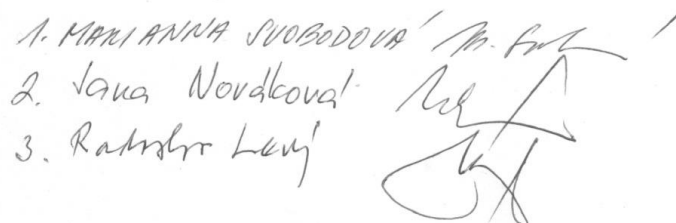 1. MARIANNA SVOBODOVÁ
2. Jana Nováková
3. Radoslav Levý